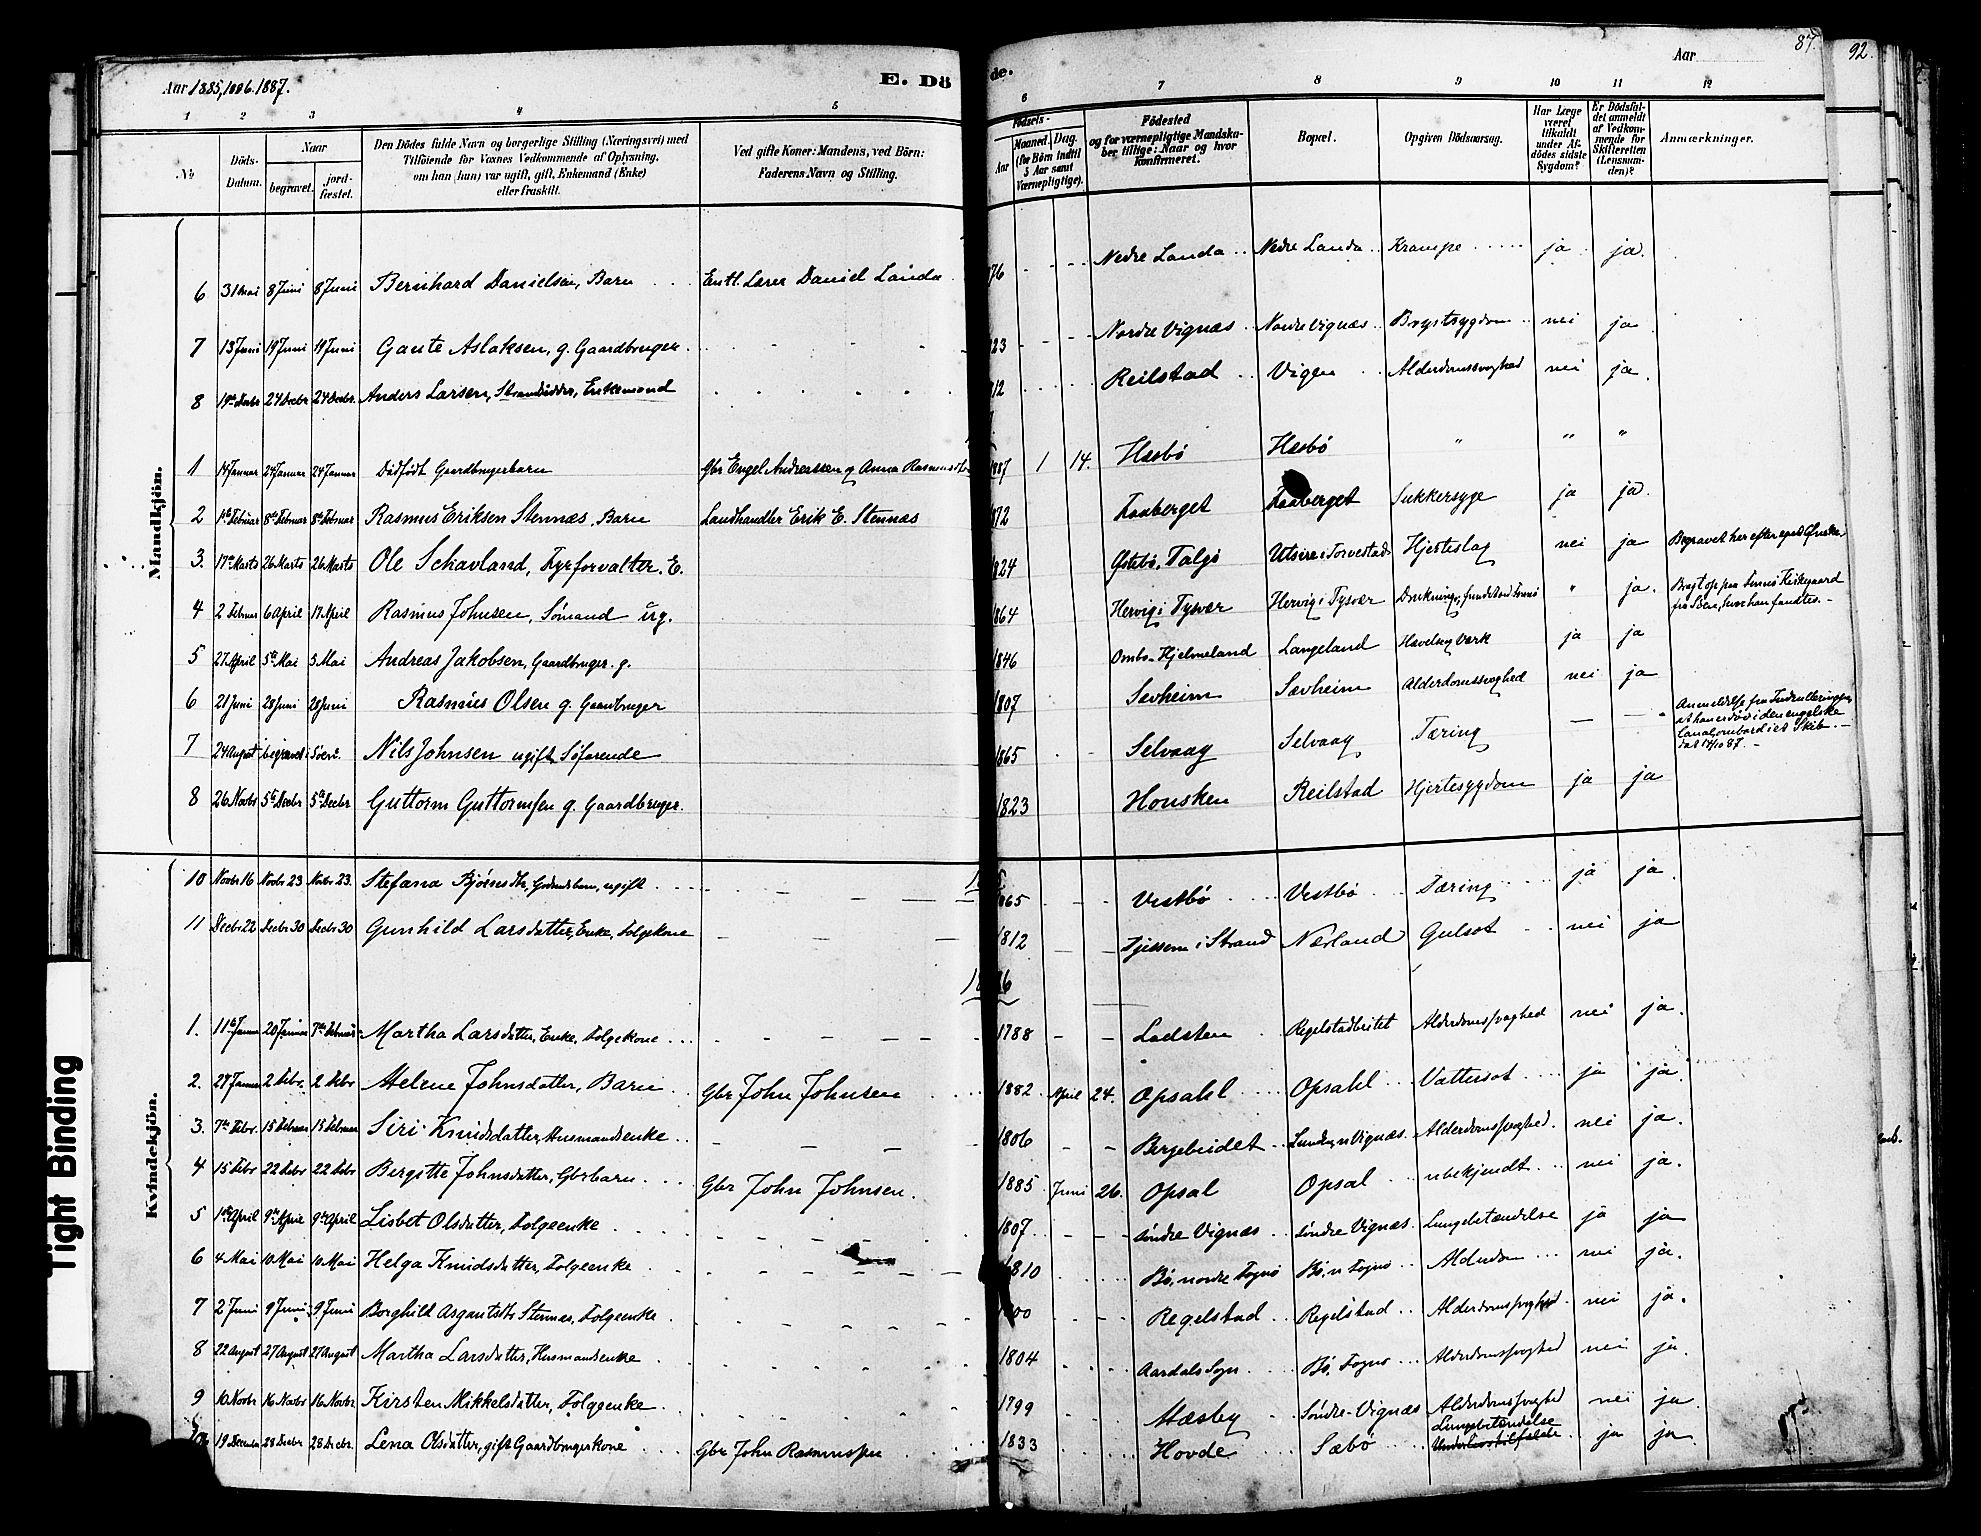 Aar 1885, 1886. 1887.
E. Dö
de.
Aar
87.
92.
1 2 3 4 5 6 7 8 9 10 11 12
No
Döds-Datum.
Naar
begravet.
jord-fæstet.
Den Dödes fulde Navn og borgerlige Stilling (Næringsvei) med
Tilföiende for Voxnes Vedkommende af Oplysning,
om han (hun) var ugift, gift, Enkemand (Enke)
eller fraskilt.
Ved gifte Koner: Mandens, ved Börn:
Faderens Navn og Stilling.
Födsels-
Aar
Maaned. Dag.
(for Börn indtil
5 Aar samt
Værnepligtige).
Födested
og for værnepligtige Mandska-
ber tillige: Naar og hvor
konfirmeret.
Bopæl.
Opgiven Dödsaarsag.
Har Læge
været
tilkaldt
under Af-
dödes sidste
Sygdom?
Er Dödsfal-
det anmeldt
af Vedkom-
mende for
Skifteretten
(Lensman-
den)?
Anmærkninger.
Mandkjön.
6 31 Mai 8 Juni 8 Juni Bernhard Danielsen, Barn Entl. Lærer Daniel Landa 76 Nedre Landa Nedre Landa Krampe ja ja.
7 13 Juni 19 Juni 19 Juni Gaute Aslaksen, g. Gaardbruger 23 Nordre Vignæs Nordre Vignæs Brystsygdom nei ja
8 19de Decbr 24 Decbr 24 Decbr. Anders Larsen, Strandsidder, Enkemand 12 Reilstad Vigen Alderdomssvaghed nei ja.
1 14 Januar 24 Januar 24 Januar Dødfødt Gaardbrugerbarn Gbr Engel Andreassen og Anna Rasmusdtr 1887 1 14. Hasbö Hasbö " " "
2 1ste Februar 8de Februar 8de Februar Rasmus Eriksen Stennæs, Barn Landhandler Erik E. Stennæs 1872 Faaberget Faaberget Sukkersyge ja ja.
3. 17de Marts 26 Marts 26 Marts Ole Schavland, Fyrforvalter. E. 1824 Østebö, Talgö Utsire i Torvestad Hjerteslag nei ja Begravet her efter eget Ønske.
4 2 Februar 6 April 17 April Rasmus Johnsen, Sömand ug. 1864 Hervig i Tysvær Hervig i Tysvær Drukning, funden ved Fennø " ja. Bragt op paa Fennø Kirkegaard
fra Søen, hvor han fandtes. -
5 27 April 5te Mai 5 Mai Andreas Jakobsen, Gaardbruger. g. 1846 Ombo. Hjelmeland Langeland Havelsey Værk ja ja
6 21 Juni 28 Juni 28 Juni Rasmus Olsen g. Gaardbruger 1807 Sevheim Sævheim Alderdomssvaghed nei ja
7 24 August begravet i Søen. Nils Johnsen ugift Söfarende 1865 Selvaag Selvaag Tæring — — Anmeldelse fra Indrulleringen,
at han er död i den engelske
Canal ombord i et Skib. -
dat 14/10 87. -
8 26 Novbr 5te Decbr 5te Decbr Guttorm Guttormsen g. Gaardbruger. 1823 Housken Reilstad Hjertesygdom ja ja
Kvindekjön.
10 Novbr 16 Novbr 23 Novbr 23. Stefana Bjørnsdtr, ugift 1865 Vestbö Vestbö Tæring ja ja.
11 Decbr 22 Decbr 30 Decbr 30 Gunhild Larsdatter, Enke, Folgekone 1812 Fjessem i Strand Nærland Gulsot nei ja
1886
1. 11te Januar 20 Januar 7de Februar Martha Larsdatter, Enke, Folgekone 1788 Ladsten Regelstadbeitet Alderdomssvaghed nei ja.
2. 27 Januar 2 Febr. 2 Febr Helene Johnsdatter, Barn Gbr John Johnsen 1882 April 24. Opsahl Opsahl Vattersot ja ja.
3. 7de Febr. 15 Februar 15 Februar Siri Knudsdatter, Husmandsenke 1806 Bergebeidet Lunden, n Vignæs. Alderdomssvaghed. nei ja.
4 15 Febr 22 Febr 22 Febr Bergitte Johnsdatter, Gbrbarn Gbr John Johnsen. 1885 Juni 26. Opsal Opsal ubekjendt nei ja.
5 1ste April 9de April 9de April Lisbet Olsdatter, Folgeenke 1807. Söndre Vignæs Söndre Vignæs. Lungebetændelse ja ja
6 4 Mai 10 Mai 10 Mai Helga Knudsdatter, Folgeenke 1810 Bö, nordre Fogno Bö, n Fogno Alderdom nei ja.
7 2 Juni 9 Juni 9 Juni Borghild Asgautsdtr Stennæs, Folgeenke 1800 Regelstad Regelstad Alderdomssvaghed. nei ja.
8 22 August 27 August 27 August Martha Larsdatter, Husmandsenke 1804 Aardals Sogn Bö, Fogno Alderdomssvaghed nei ja.
9 10 Novbr 16 Novbr 16 Novbr Kirsten Mikkelsdatter, Folgeenke 1799 Mæsby Söndre-Vignæs Alderdomssvaghed nei ja.
10 19 December 28 Decbr 28 Decbr. Lena Olsdatter, gift Gaardbrugerkone Gbr John Rasmussen 1833 Hovde Sæbö Lungebetændelse
Underlivstilfælde ja ja.
Tight Binding